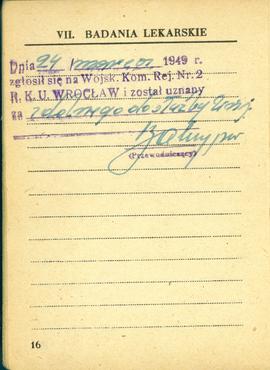 VII. BADANIA LEKARSKIE
Dnia 24 marca 1949 r.
zgłosił się na Wojsk. Kom. Rej. Nr. 2
R.K.U. WROCŁAW i został uznany
za zdolnego do służby
(Przewodniczący)
16